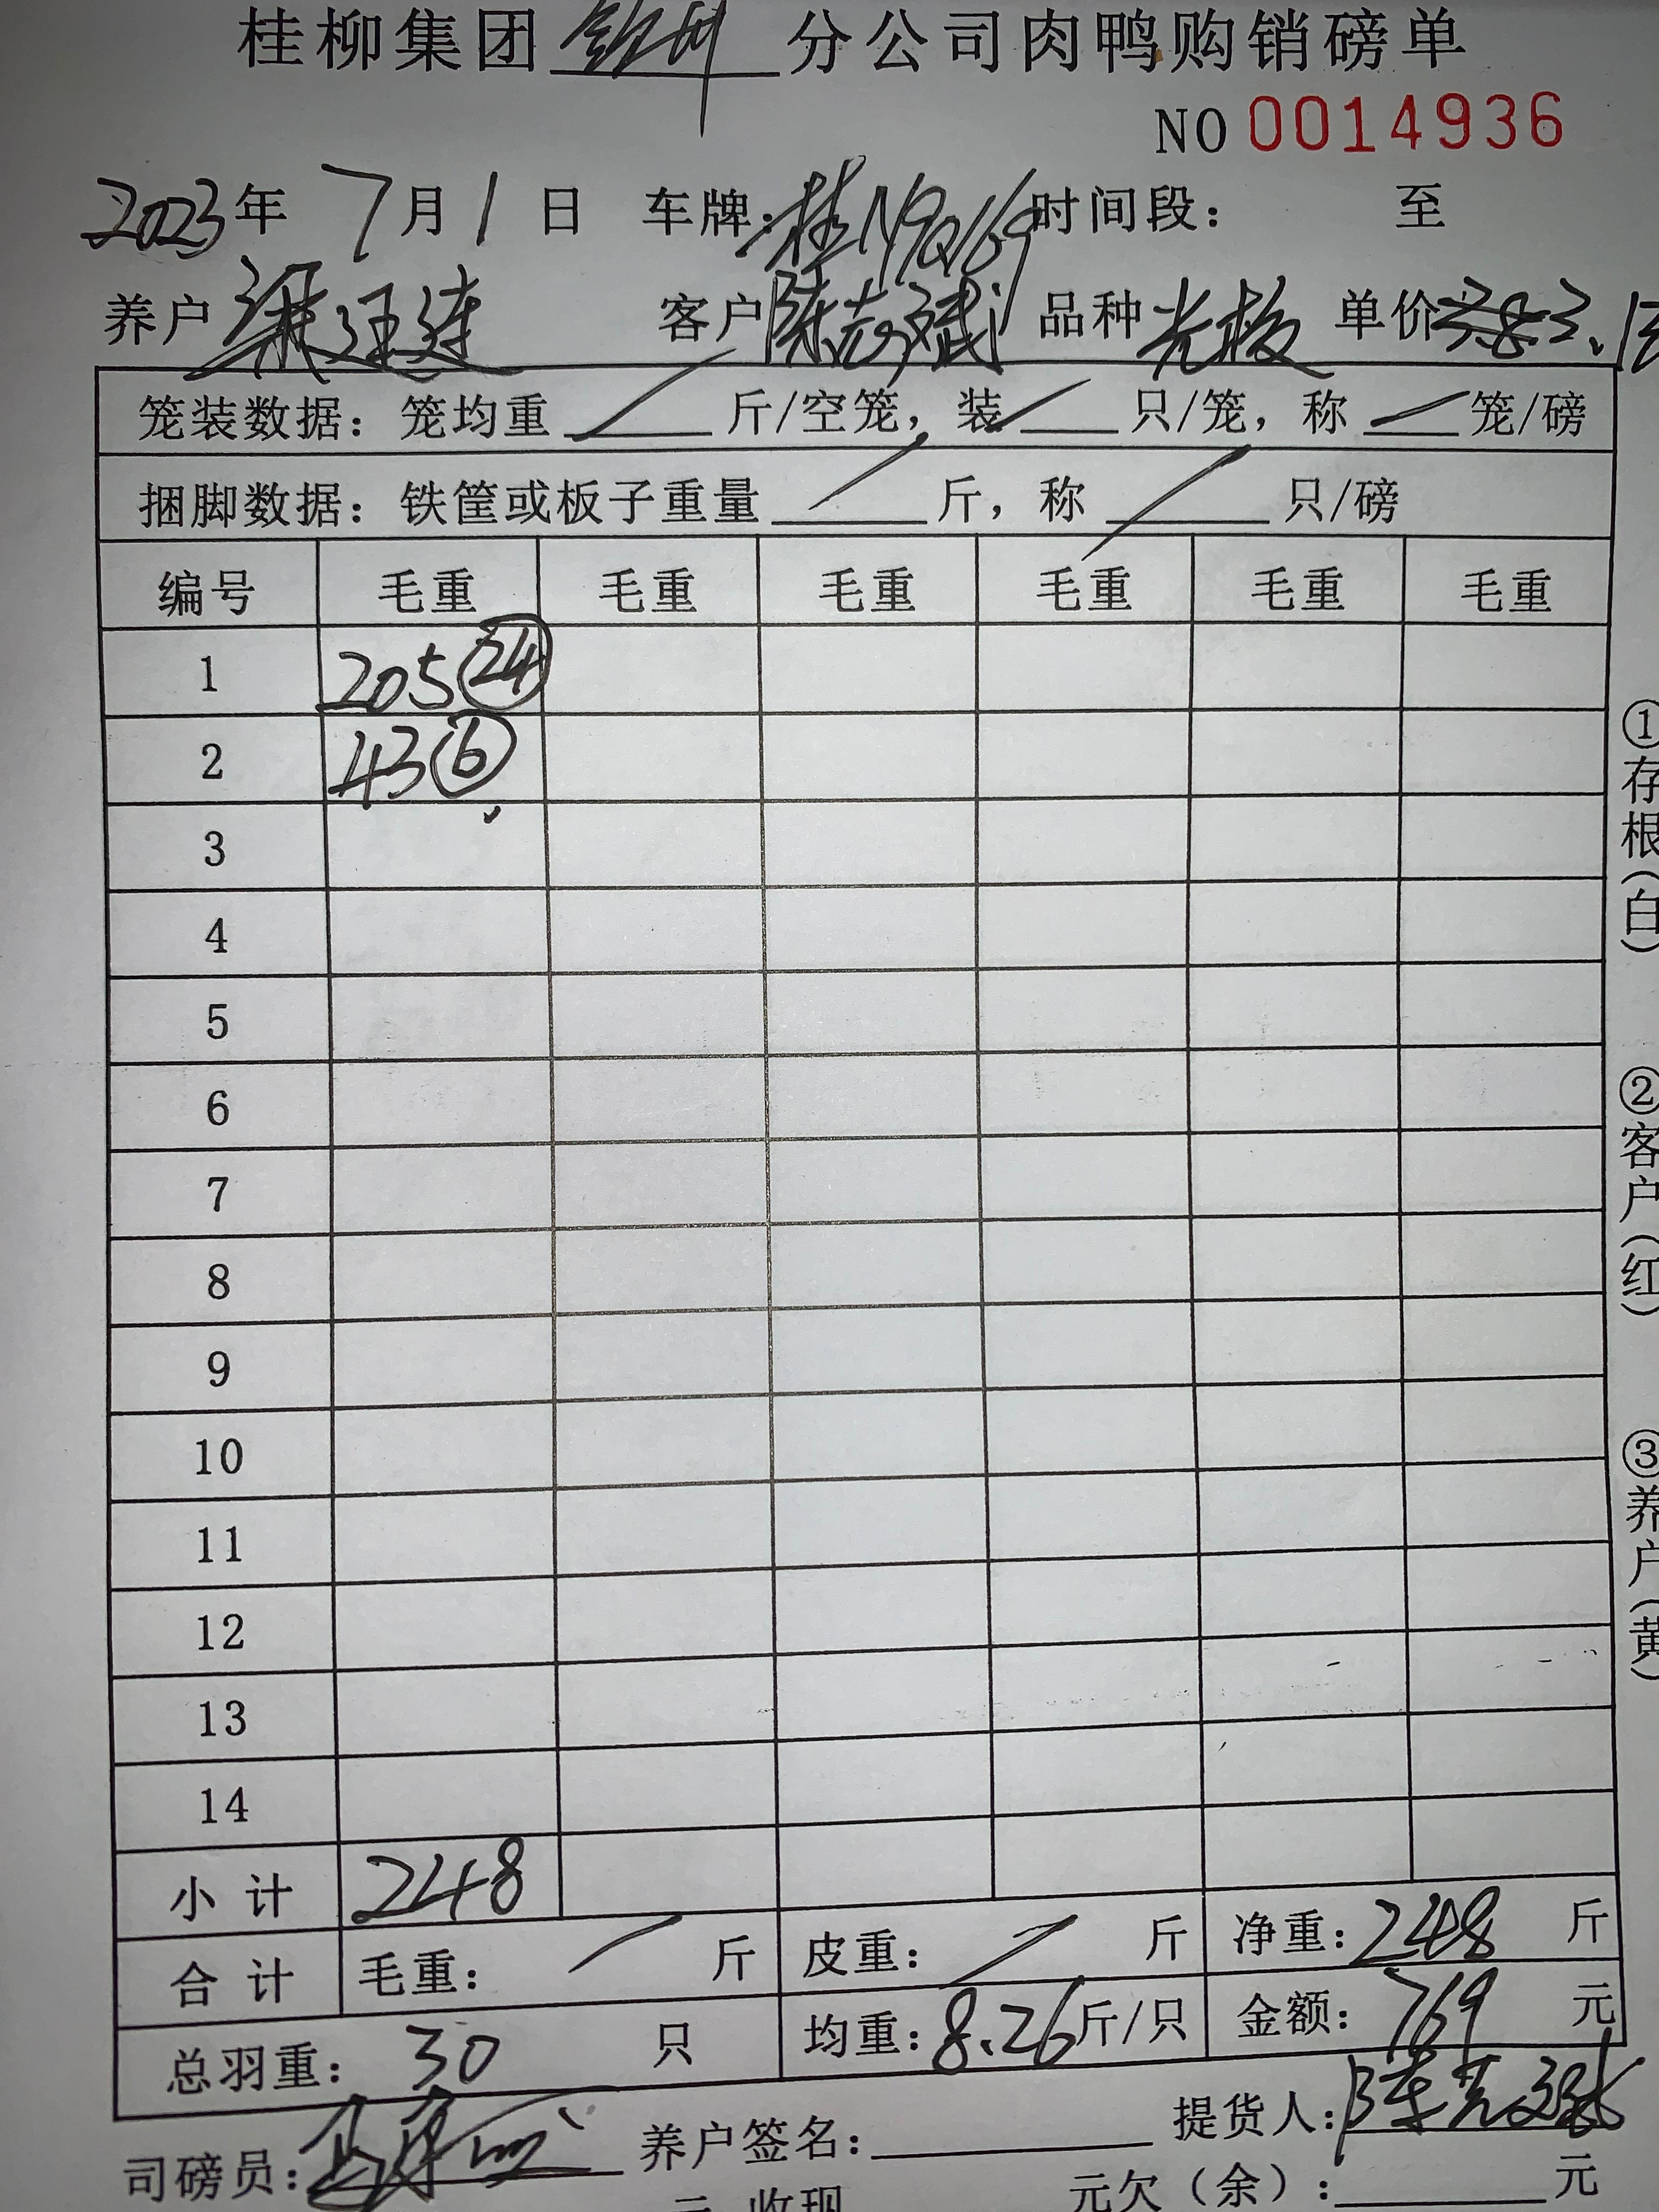 桂柳集团钦州分公司肉鸭购销磅单
NO 0014936
2023年 7月1日 车牌:桂N9Q169 时间段: 至
养户 客户 陈志斌 品种 单价 3.1
笼装数据: 笼均重 / 斤/空笼, 装 / 只/笼, 称 / 笼/磅
捆脚数据: 铁筐或板子重量 / 斤, 称 / 只/磅
编号 毛重 毛重 毛重 毛重 毛重 毛重
1 205 24
2 43 6
3
4
5
6
7
8
9
10
11
12
13
14
小计 248
合计 毛重: / 斤 皮重: / 斤 净重: 248 斤
总羽重: 30 只 均重: 8.26斤/只 金额: 769 元
司磅员: 养户签名: 提货人: 陈志斌
元 收现 元欠(余): 元
①存根(白)
②客户(红)
③养户(黄)